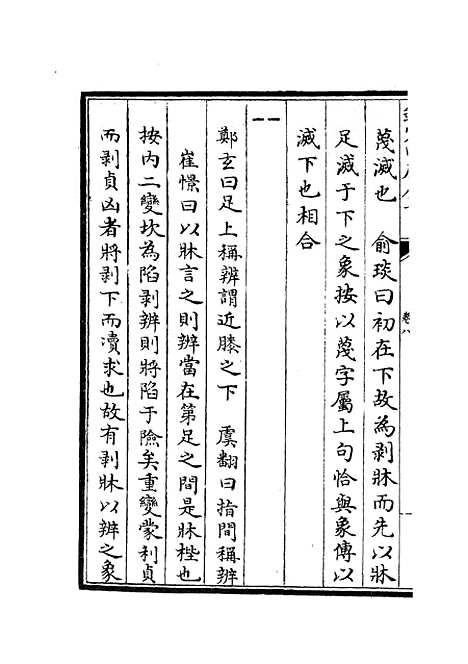 蔑滅也　俞琰曰初在下故為剥牀而先以牀
足滅于下之象按以蔑字屬上句恰與象傳以
滅下也相合
鄭玄曰足上稱辨謂近膝之下　虞翻曰指間稱辨
崔憬曰以牀言之則辨當在第足之間是牀梐也
按内二變坎為陷剥辨則將陷于險矣重變蒙利貞
而剥貞凶者將剥下而瀆求也故有剥牀以辨之象
卷八